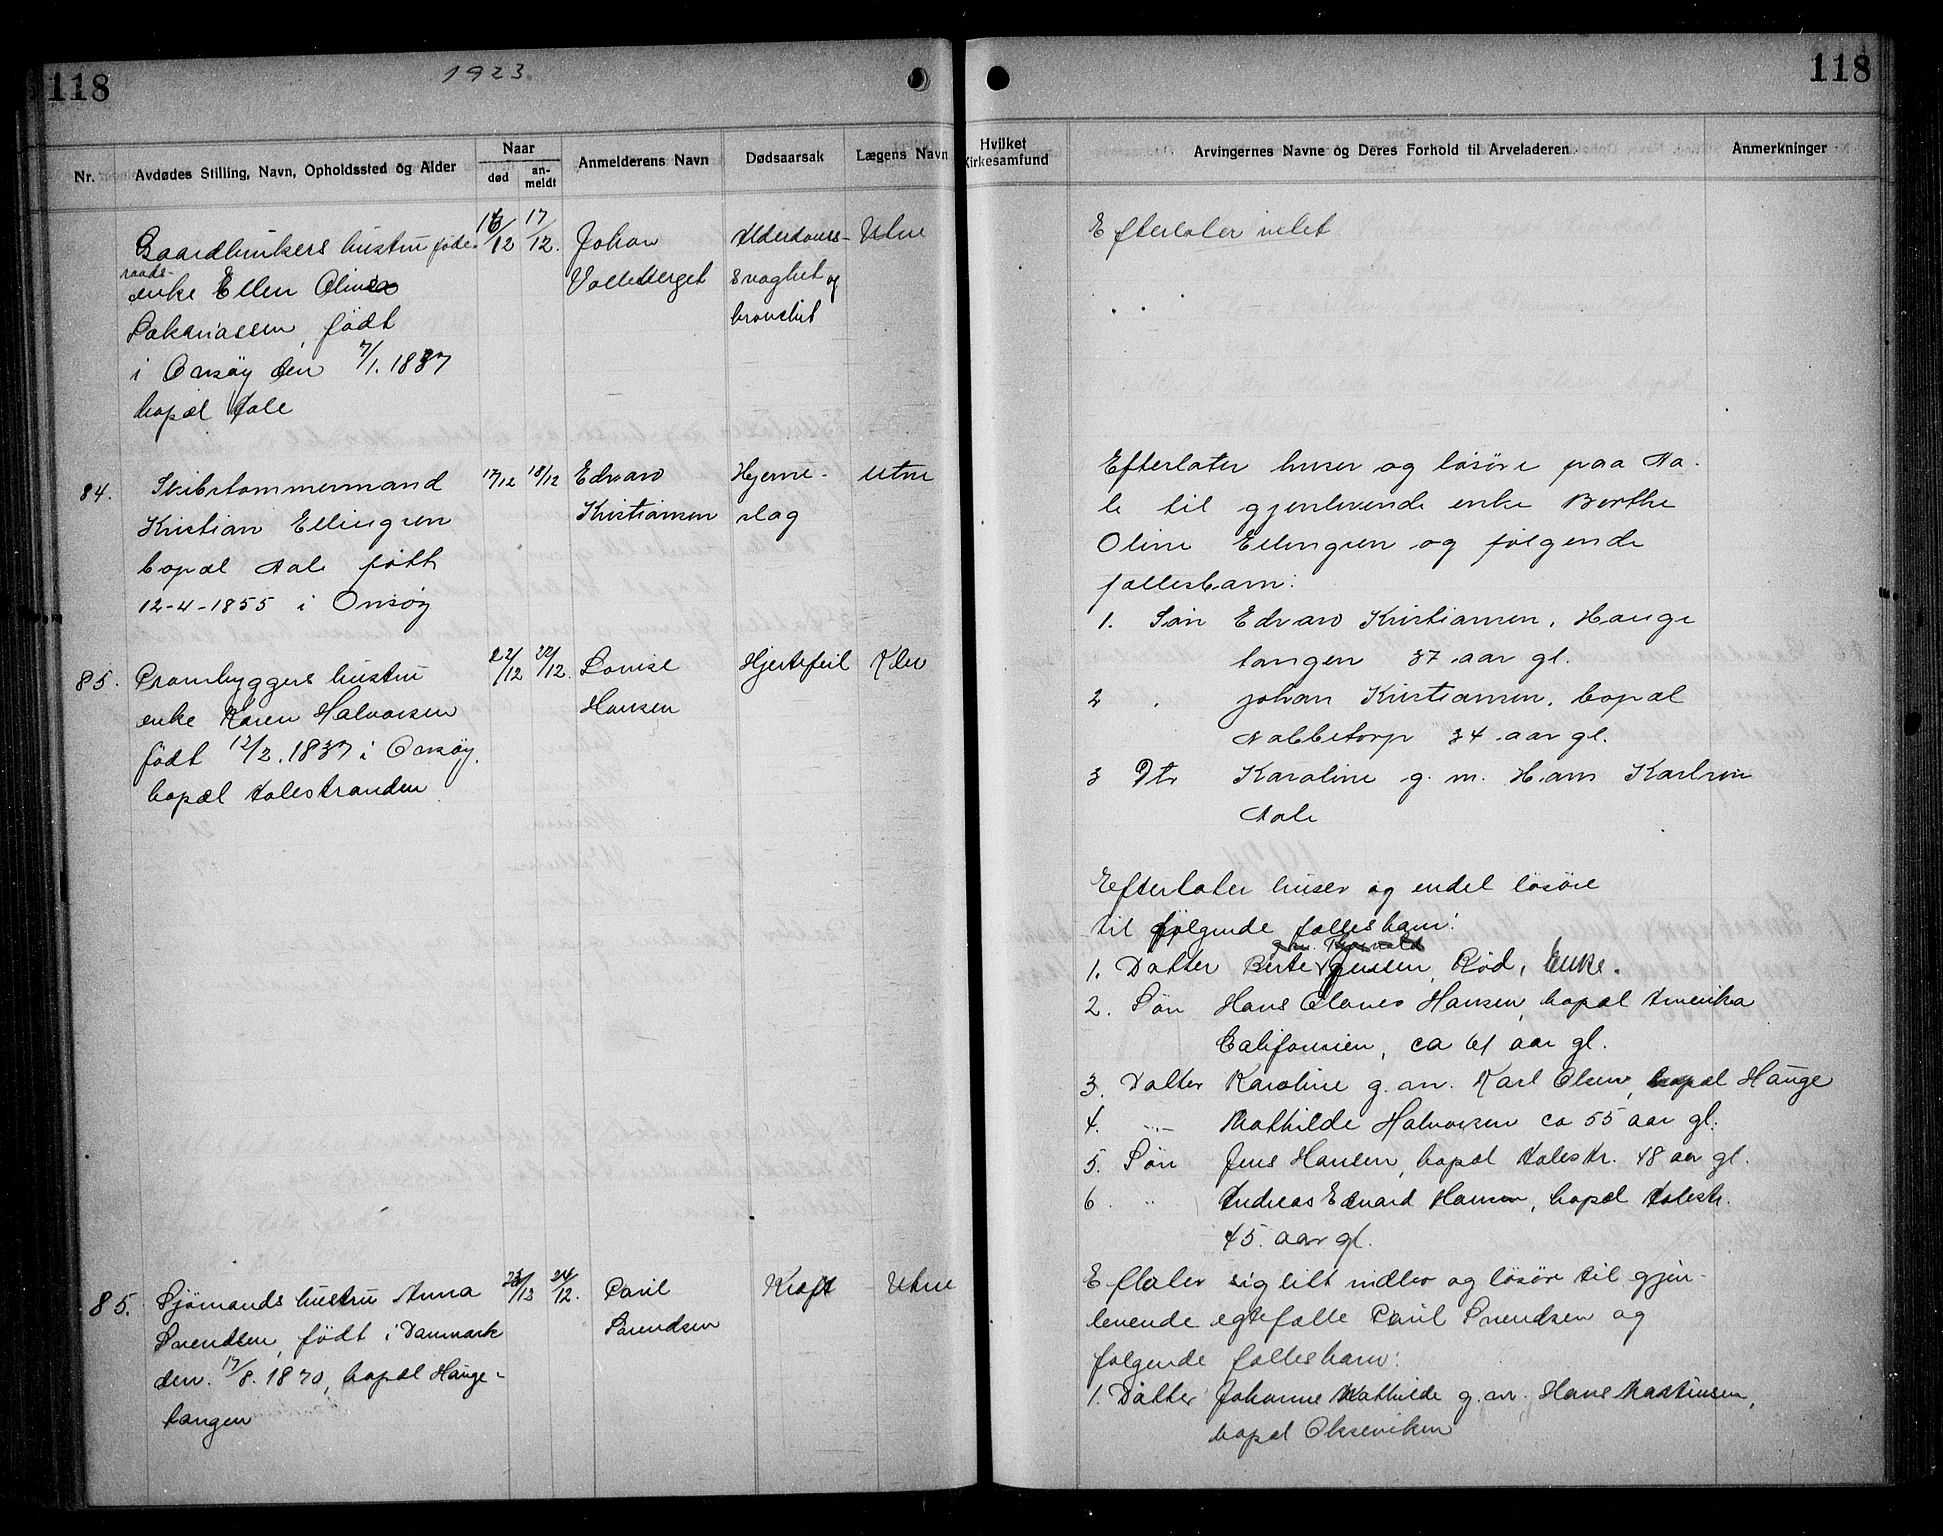 118
1923
Nr.
Avdødes Stilling, Navn, Opholdssted og Alder
Naar
død
an-
meldt
Anmelderens Navn
Dødsaarsak
Lægens Navn
Gaardbrukers hustru føde
raads-
enke Ellen Olivia
Sakariassen, født
i Onsøy den 7/1. 1837
bopæl Aale
16/12
17/12.
Johan
Valleberget
Alderdoms-
svaghet og
bronchit
Utne
84.
Skibstømmermand
Kristian Ellingsen
bopæl Aale født
12-4-1855 i Onsøy
17/12
18/12
Edvard
Kristiansen
Hjerne-
slag
Utne
85.
Prambyggers hustru
enke Karen Halvorsen
født 12/2. 1837 i Onsøy.
bopæl Aalestranden
22/12
22/12.
Lovise
Hansen
Hjertefeil
85.
Sjømands hustru Anna
Svendsen, født i Danmark
den 17/8. 1870, bopæl Hauge-
tangen
23/12
24/12.
Paul
Svendsen
Kræft
Utne
118
Hvilket
Kirkesamfund
Arvingernes Navne og Deres Forhold til Arveladeren
Anmerkninger
Efterlater intet
Efterlater huser og løsøre paa Aa-
le til gjenlevende enke Berthe
Oline Ellingsen og følgende
fællesbarn:
1. Søn Edvard Kristiansen, Hauge
tangen 37 aar gl.
2 " Johan Kristiansen, bopæl
Nabbetorp 34 aar gl.
3 Dtr Karoline g. m. Hans Karlsen
Aale
Efterlater huser og endel løsøre
til følgende fællesbarn:
1. Datter Berte Jensen, Rød, Enke.
2. Søn Hans Olaves Hansen, bopæl Amerika
Californien, ca 61 aar gl.
3. Datter Karoline g. m. Karl Olsen, bopæl Hauge
4. -"- Mathilde Halvorsen ca 55 aar gl.
5. Søn Jens Hansen, bopæl Aalestr. 48 aar gl.
6. " Andreas Edvard Hansen, bopæl Aalestr.
45. aar gl.
Eftlater sig litt indbo og løsøre til gjen-
levende egtefælle Paul Svendsen og
følgende fællesbarn:
1. Datter Johanne Mathilde g. m. Hans Martinsen,
bopæl Okseviken